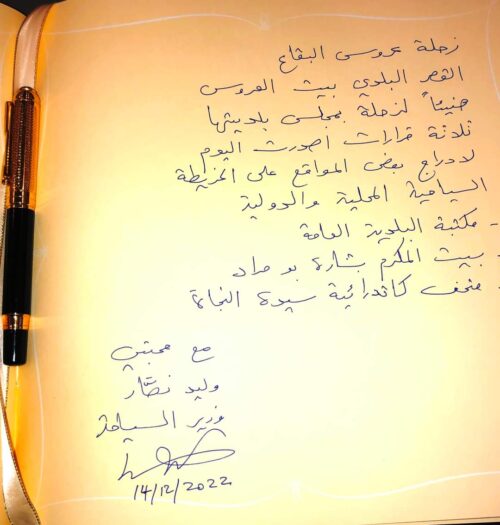 زحلة عروس البقاع
القصر البلدي بيت العروس
هنيئاً لزحلة بمجلس بلديتها
ثلاثة قرارات اصدرت اليوم
لادراج بعض المواقع على الخريطة
السياحية المحلية والدولية
- مكتبة البلدية العامة
- بيت المكرم بشارة بو مراد
- متحف كاتدرائية سيدة النجاة
مع محبتي
وليد نصّار
وزير السياحة
14/12/2022